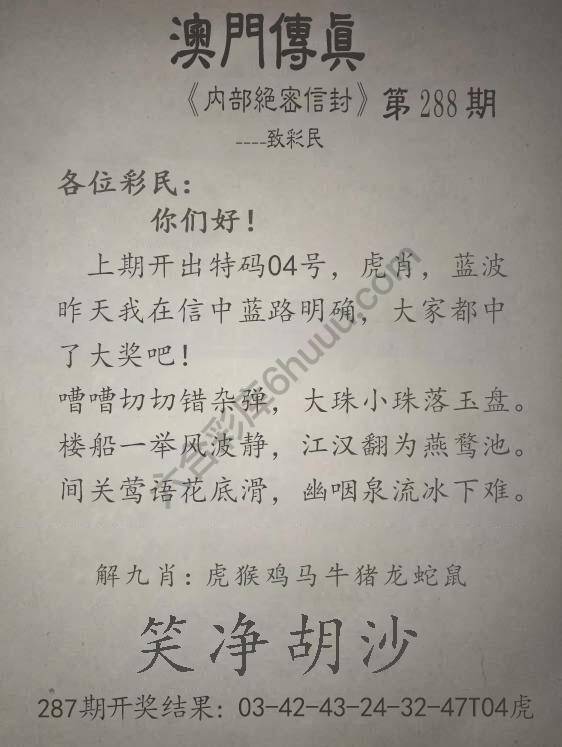 澳門傳真
《内部絕密信封》第288期
----致彩民
各位彩民：
你们好！
上期开出特码04号，虎肖，蓝波
昨天我在信中蓝路明确，大家都中
了大奖吧！
嘈嘈切切错杂弹，大珠小珠落玉盘。
楼船一举风波静，江汉翻为燕鹜池。
间关莺语花底滑，幽咽泉流冰下难。
解九肖：虎猴鸡马牛猪龙蛇鼠
笑净胡沙
287期开奖结果：03-42-43-24-32-47T04虎
六合彩库6huuu.com